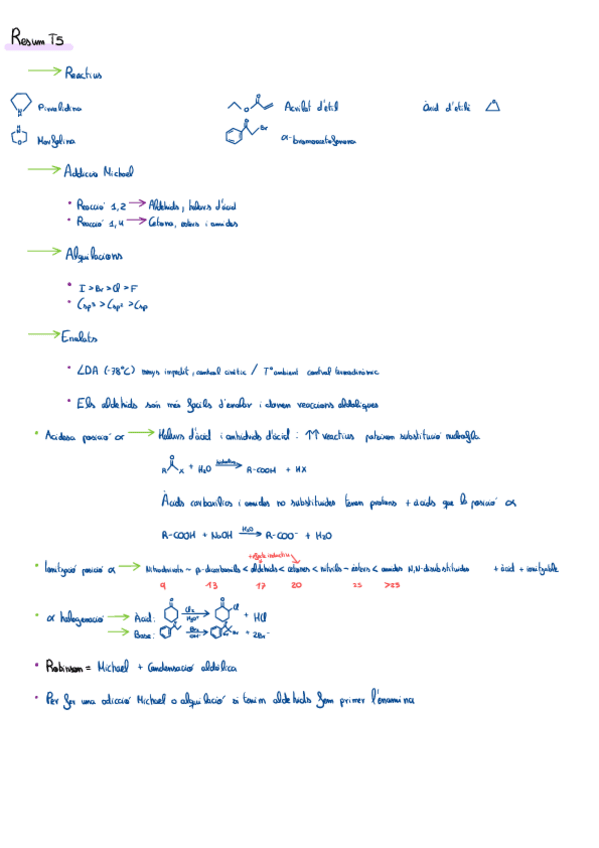 Resum T5
Reactius
Pirrolidina
Acrilat d'etil
Àcid d'etilè
Morfolina
α-bromoacetofenona
Addició Michael
Reacció 1,2 → Aldehids, halurs d'àcid
Reacció 1,4 → Cetona, esters i amides
Alquilacions
I > Br > Cl > F
Csp³ > Csp² > Csp
Enolats
LDA (-78°C) menys impedit, control cinètic / Tª ambient control termodinàmic
Els aldehids són més fàcils d'enolar i donen reaccions aldòliques
Acidesa posició α → Halurs d'àcid i anhidrids d'àcid: ↑↑ reactius pateixen substitució nucleòfila
R X + H2O → R-COOH + HX
Àcids carboxílics i amides no substituïdes tenen protons + àcids que la posició α
R-COOH + NaOH H2O → R-COO⁻ + H2O
+ efecte inductiu
Ionització posició α → Nitroderivats ~ β-dicarbonils < aldehids < cetones < nitrils ~ esters < amides N,N-disubstituïdes + àcid + ionitzable
9 13 17 20 25 >25
α halogenació → Àcid: Cl2 H3O⁺ Cl + HCl
→ Base: Br2 OH⁻ Br + 2Br⁻
Robinson = Michael + Condensació aldòlica
Per fer una addició Michael o alquilació si tenim aldehids fem primer l'enamina